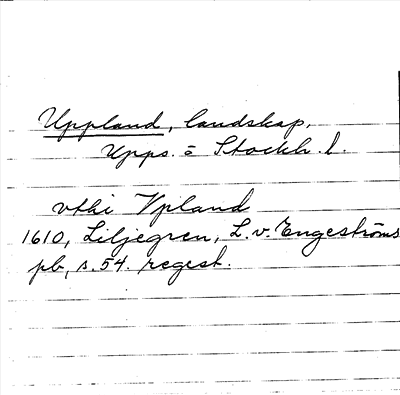 Uppland, landskap,
Upps. o Stockh. l.
vthi Vpland
1610, Liljegren, L. v. Engeströms
pb, s. 54. regest.